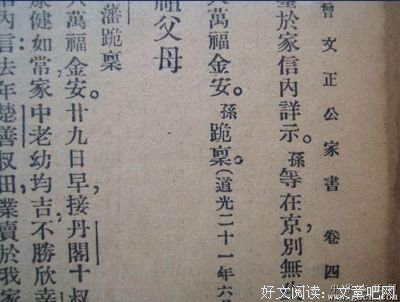 曾文正公家書 卷四
於家信內詳示。孫等在京別無
大萬福金安。孫跪稟。(道光二十一年六
祖父母
藩跪稟
大萬福金安。廿九日早，接丹閣十叔
康健如常家中老幼均吉不勝欣幸
內言去年楚善叔田，業賣於我家
好文阅读:.文章吧网